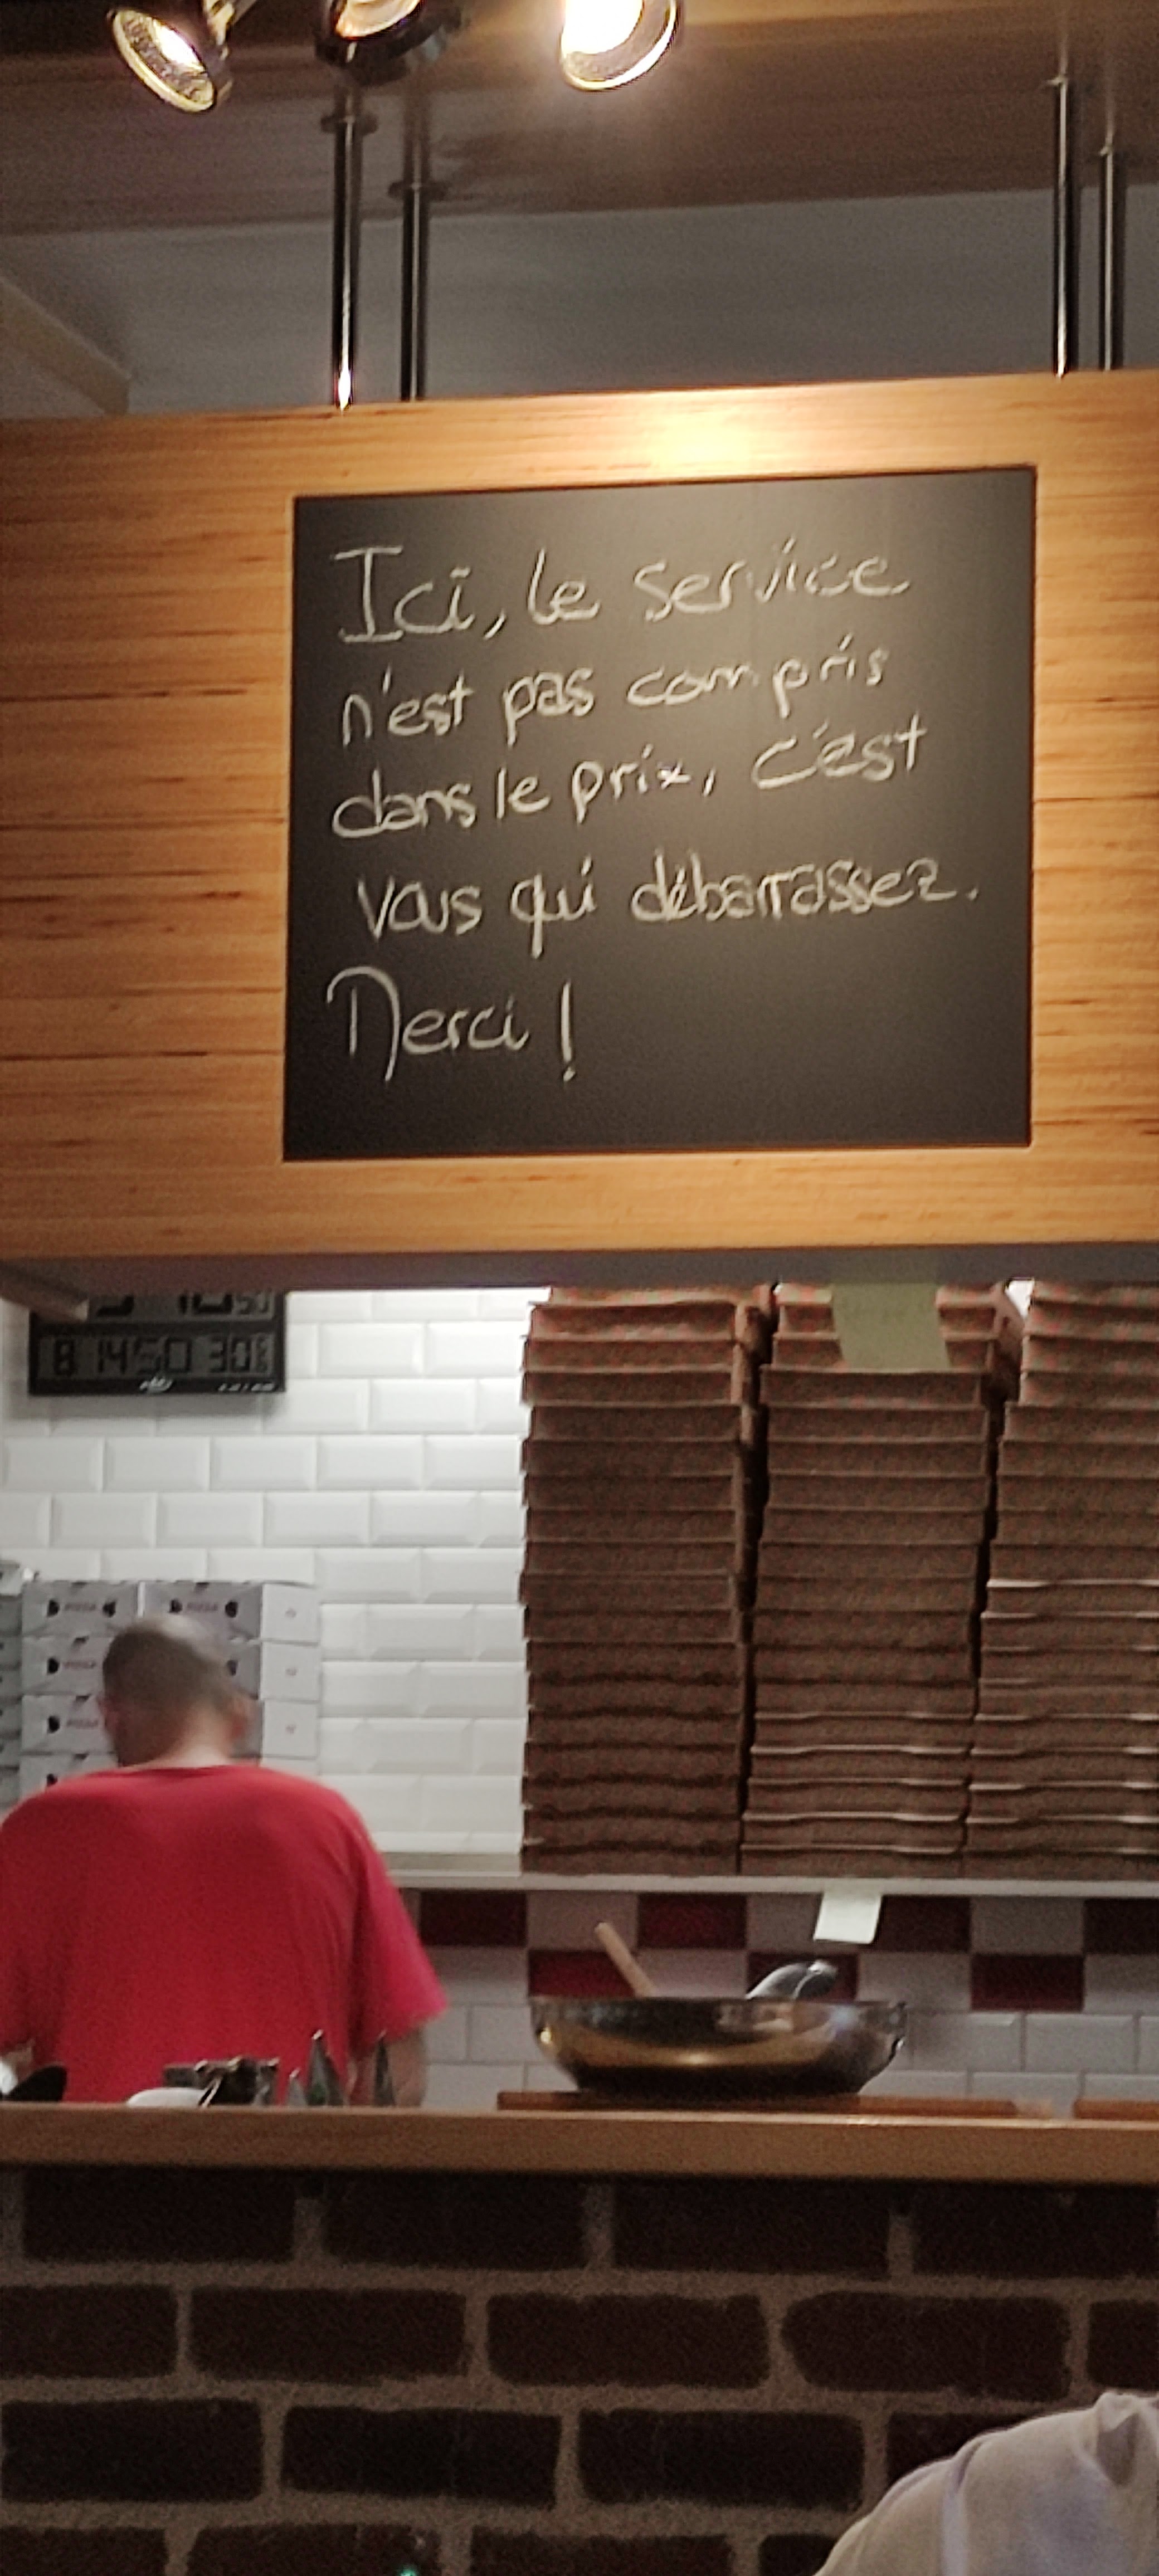 Ici, le service
n'est pas compris
dans le prix, c'est
vous qui débarrassez.
Merci !
8 1450 30
PIZZA PIZZA